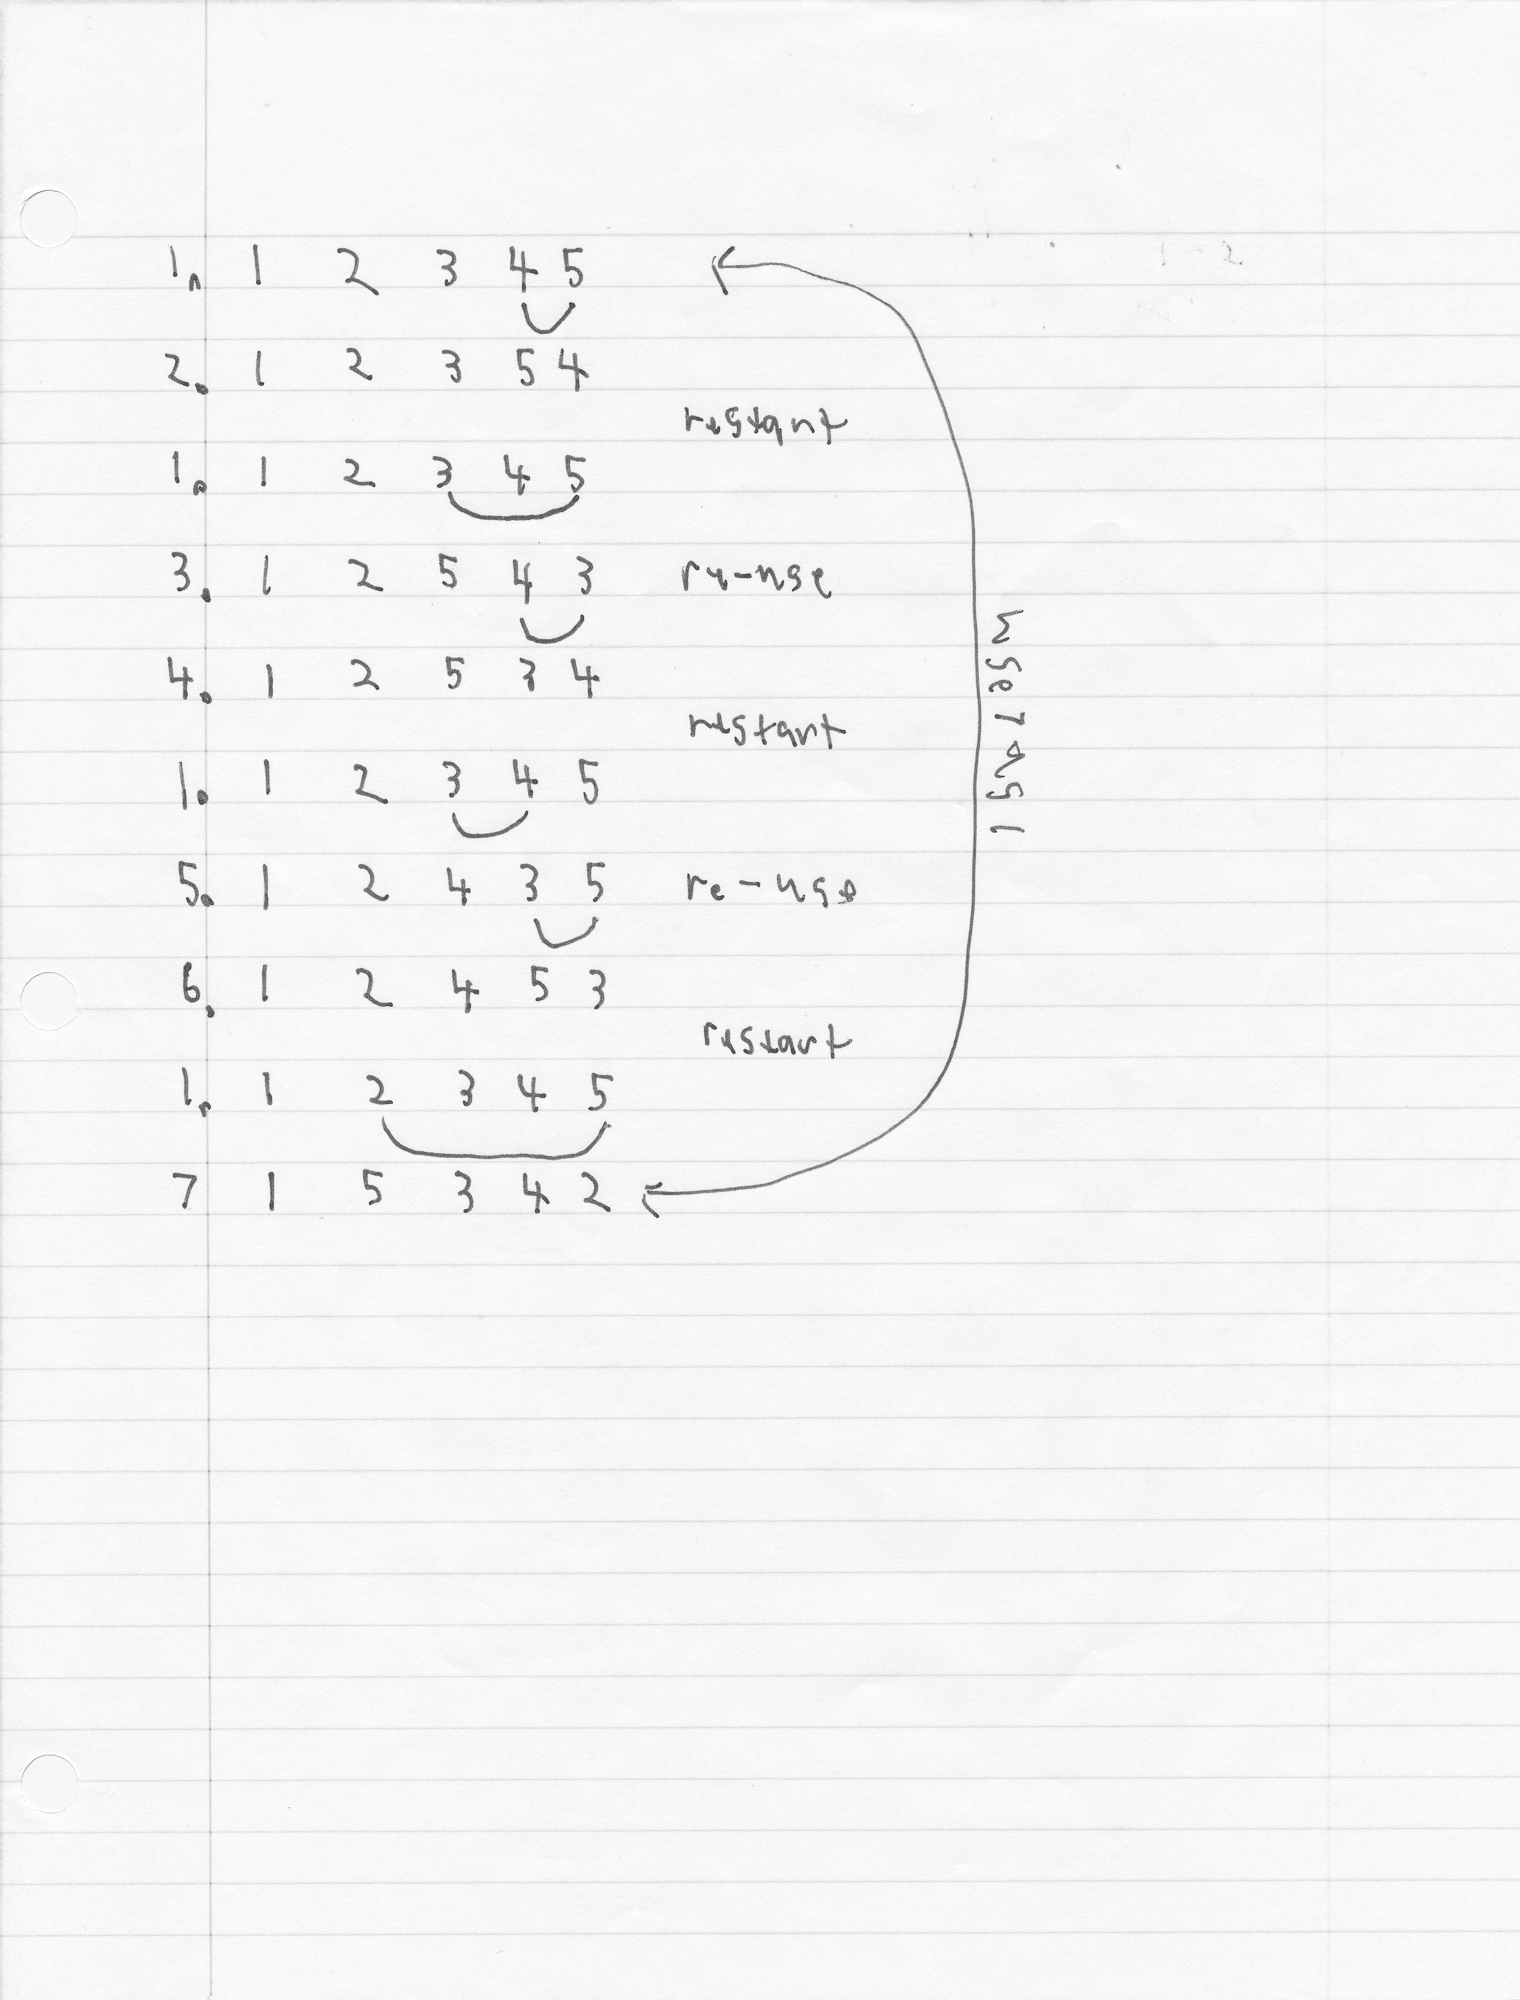 1. 1 2 3 4 5
2. 1 2 3 5 4
restart
1. 1 2 3 4 5
3. 1 2 5 4 3 re-use
4. 1 2 5 3 4
restart
1. 1 2 3 4 5
5. 1 2 4 3 5 re-use
6. 1 2 4 5 3
restart
1. 1 2 3 4 5
7 1 5 3 4 2